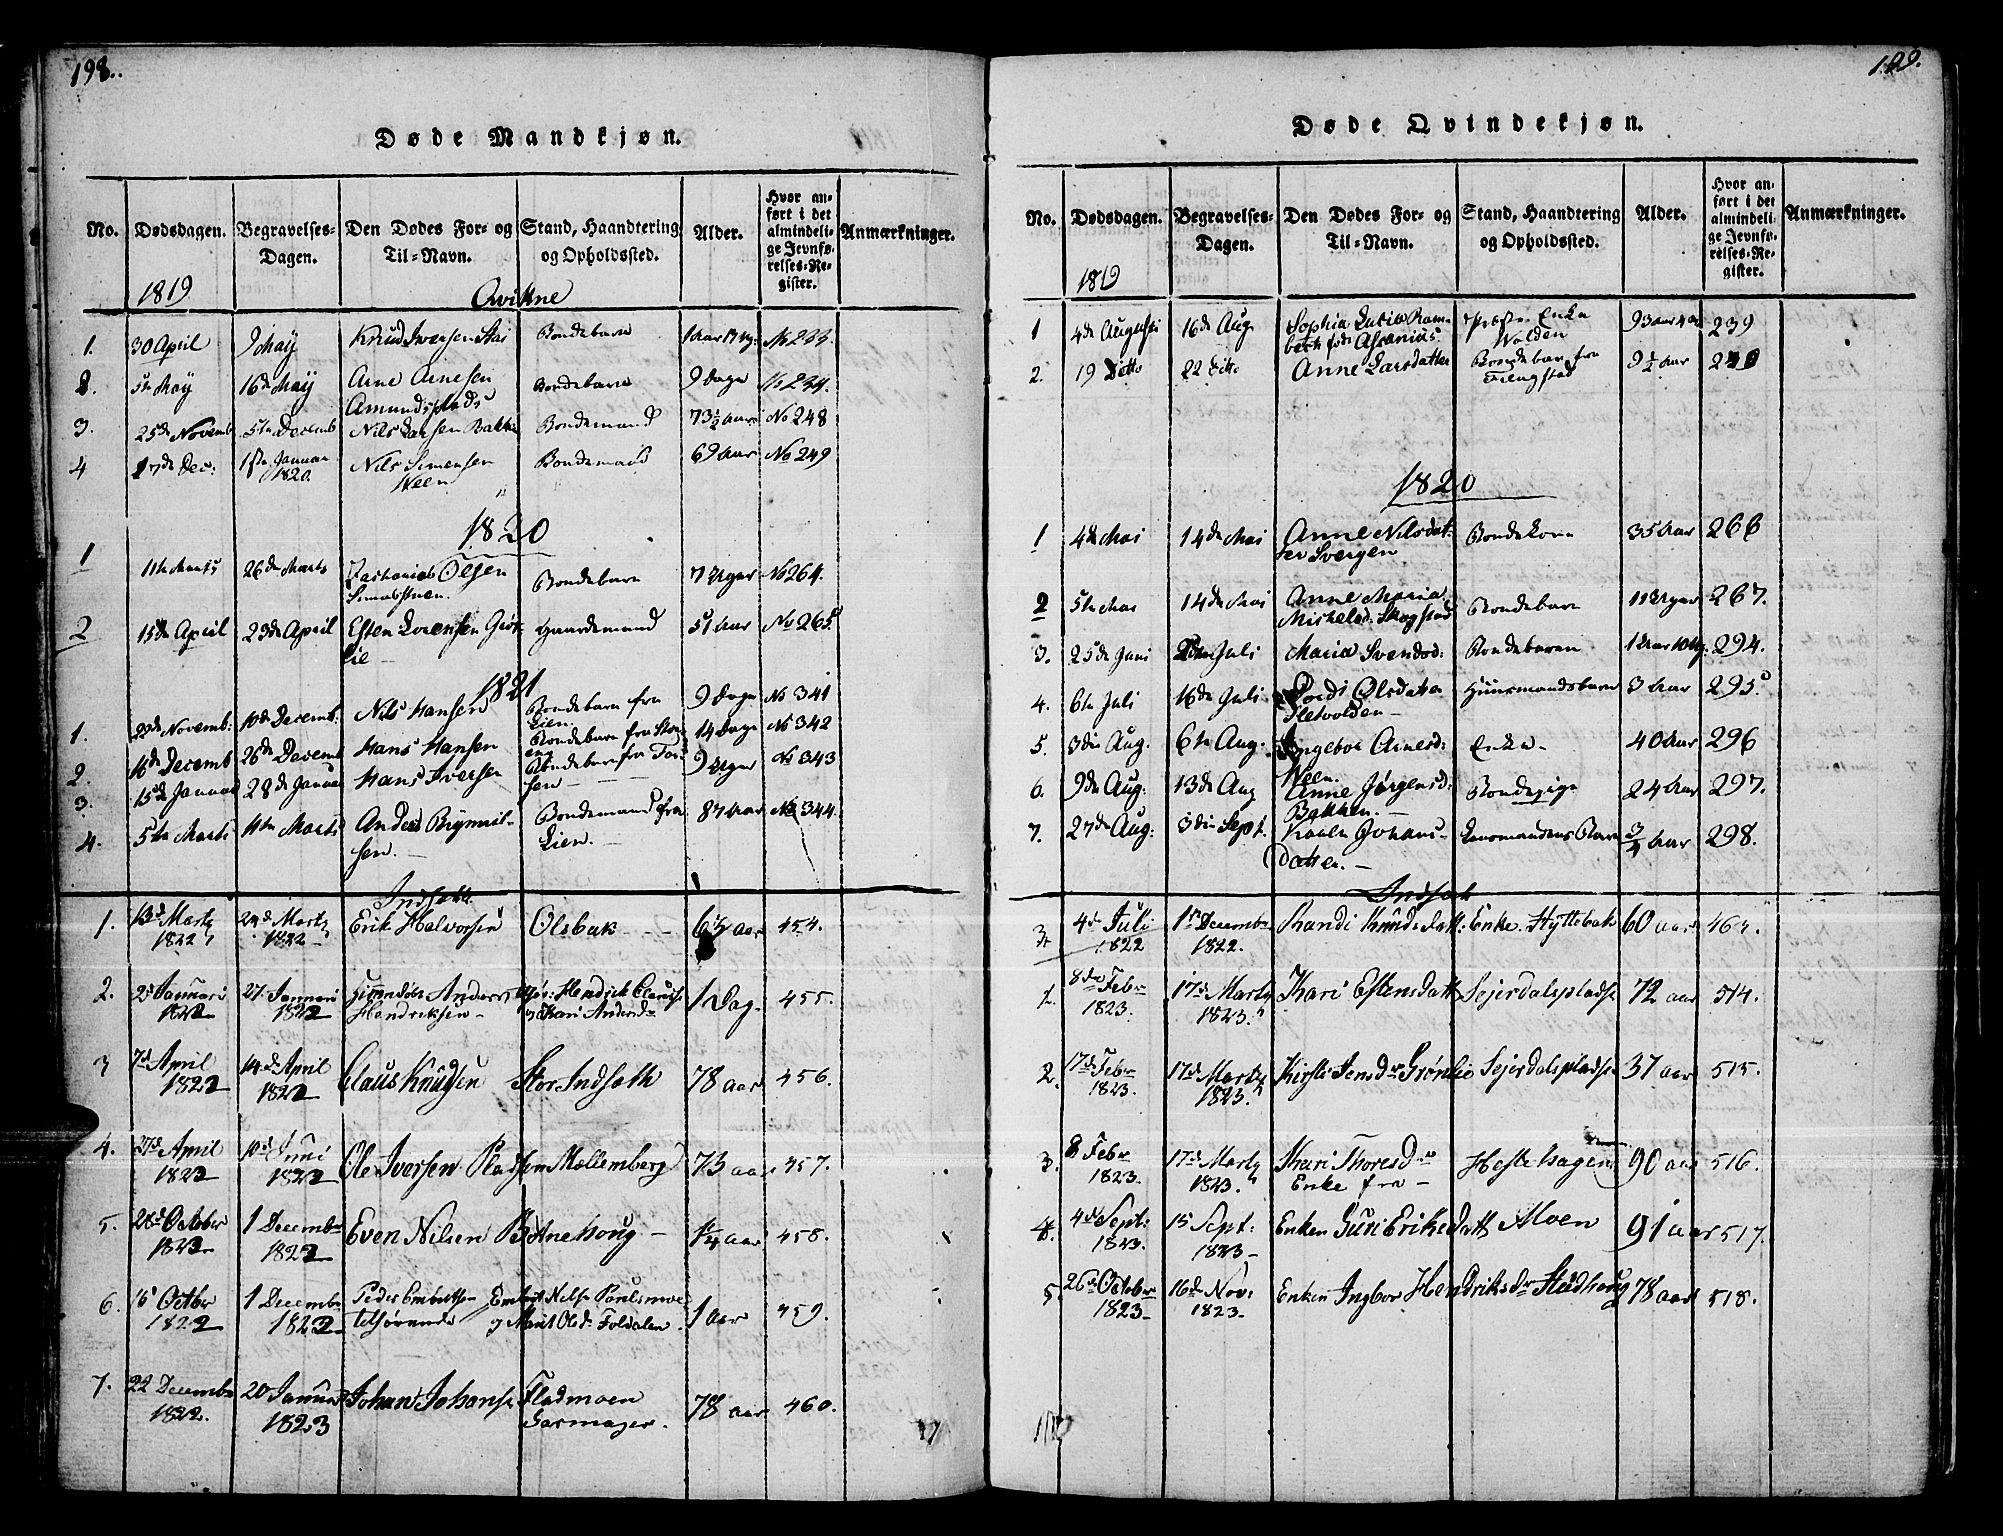 198.
Døde Mandkjøn.
No. Dødsdagen. Begravelses-Dagen. Den Dødes For- og Til-Navn. Stand, Haandtering og Opholdssted. Alder. Hvor anført i det almindelige Jevnførelses-Register. Anmærkninger.
1819 Qvikne
1. 30 April 9 May Knud Iversen Bondebarn
2. 5te May 16de May Arne Arnesen Amundsplads Bondebarn 9 Dage
3. 25de Novemb 5te Decemb Nils Larsen Bakke Bondemand 73½ aar No 248
4 17de Dec: 1ste Januar 1820. Nils Simensen Neen Bondemand 69 Aar No 249
1820
1 11te Marts 26de Marts Zacharias Olsen Bondebarn 7 Uger No 264.
2 15de April 23de April Esten Lorensen Grøtlie Gaardemand 51 Aar No 265
1821
1. 29de Novemb: 10de Decemb: Nils Hansen Bondebarn fra Lien. 9 Dage No 341
2. 16de Decemb 26de Decemb Hans Hansen Bondebarn fra 14 Dage No 342
3. 15de Januar 28de Januar Hans Iversen Bondebarn fra 9 Uger No 343
4. 5te Marts 11te Marts Anders Brynnilsen. Bondemand fra Lien. 87 Aar No 344
Indseth
1. 13de Marty 1822 24de Marty 1822 Erik Halvorsen Olsbak 6½ aar 454.
2. 25 Januari 1822 27 Januari 1822 Anders Hendriksen 1 Dag. 455.
3 7de April 1822 14de April 1822 Claus Knudsen Stor-Indseth 78 aar 456.
4. 27de April 1822 10de Juni 1822 Ole Iversen Pladsen Mellemberg 73 aar 457.
5. 28de October 1822 1 Decembr 1822 Even Nilsen Botnehoug 1¼ aar 458.
6. 16 Octbr 1822 1 Decembr 1822 Peder 1 aar 459.
7. 22 Decembr 1822. 20 Januar 1823 Johan Johansen Fladmoen Garmager. 78 aar 460.
199.
Døde Qvindekjøn.
No. Dødsdagen. Begravelses-Dagen. Den Dødes For- og Til-Navn. Stand, Haandtering og Opholdssted. Alder. Hvor anført i det almindelige Jevnførelses-Register. Anmærkninger.
1819
1 4de August 16de Aug Sophia Rambech fød Ascanius Enke Volden 93 aar 239
2. 19 Ditto 22 Ditto Anne Larsdatter Bondebarn fra 9½ Aar 240
1820
1 4de Mai 14de Mai Anne Nilsdatter Svergen Bondekone 35 Aar 266
2 5te Mai 14de Mai Anne Maria Mikkelsd. Skogstad Bondebarn 11 Uger 267.
3. 25de Juni Juli Maria Svendsd: Bondebarn 1 Aar 294.
4. 6te Juli 16de Juli Pordi Olsdatter Sletvolden Huusmandsbarn 3 Aar 295
5. 3die Aug. 6te Aug. Ingebor Arnesd: Neen. Enke 40 Aar 296
6. 9de Aug: 13de Aug Anne Jørgensd: Bakken. Bondepige 24 Aar 297.
7. 27de Aug: 3die Sept. Karen Johansdatter. ¾ Aar 298.
Indset
3. 4de Juli 1822 1ste Decembr 1822. Randi Knudsdatt: Enke. Hyttebak 60 aar
1. 8de Febr 1823. 17de Marty 1823. Kari Estensdatt Sejerdalspladsen 72 aar 514.
2. 17de Febr 1823. 17de Marty 1823. Kirsti Jensdr Grønlie Sejerdalspladsen 37 aar 515.
3. 8 Febr 1823. 17de Marty 1823. Kari Thoresdr Enke fra Hestehagen 90 aar 516.
4. 4de Sept: 1823. 15 Sept: 1823 Enken Guri Eriksdatt Moen 91 aar 517.
5. 26de October 1823 16de Nov: 1823. Enken Ingbor Hendriksdr Stadhoug 78 aar 518.